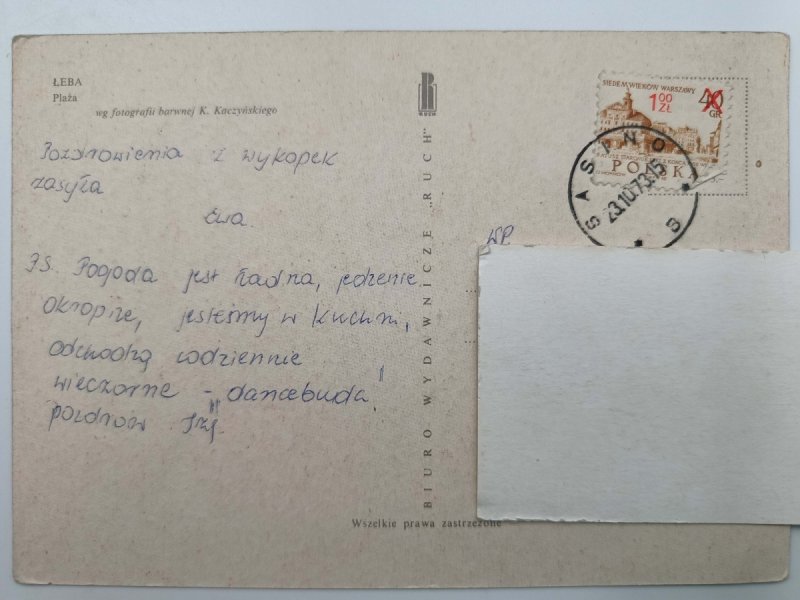 ŁEBA
Plaża
wg fotografii barwnej K. Kaczyńskiego
Pozdrowienia z wykopek
zasyła
Ewa.
PS. Pogoda jest ładna, jedzenie
okropne, jesteśmy w kuchni,
odchodzą codziennie
wieczorne - "dancebuda"
pozdrów
BIURO WYDAWNICZE „RUCH”
RUCH
SIEDEM WIEKÓW WARSZAWY
1,00 ZŁ
40 GR
POLSKA
SASINO
23.10.73.15
B
WP.
Wszelkie prawa zastrzeżone